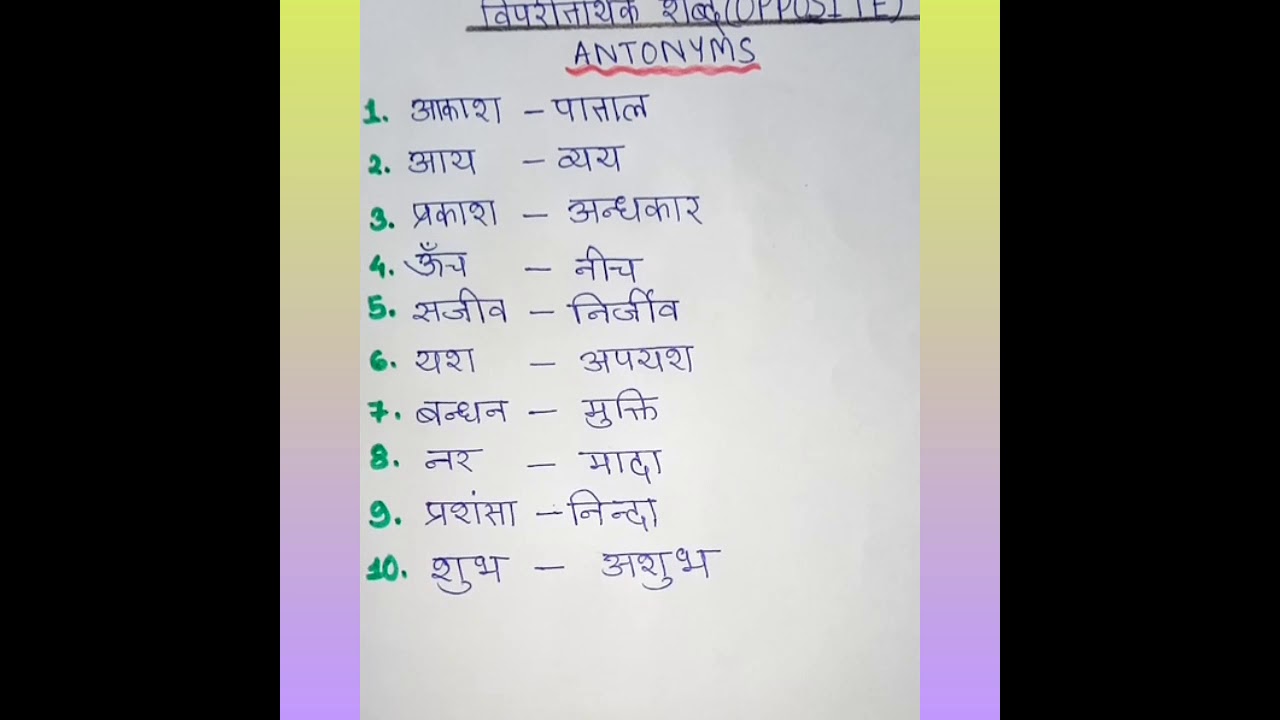 विपरीतार्थक शब्द (OPPOSITE)
ANTONYMS
1. आकाश – पाताल
2. आय – व्यय
3. प्रकाश – अन्धकार
4. ऊँच – नीच
5. सजीव – निर्जीव
6. यश – अपयश
7. बन्धन – मुक्ति
8. नर – मादा
9. प्रशंसा – निन्दा
10. शुभ – अशुभ